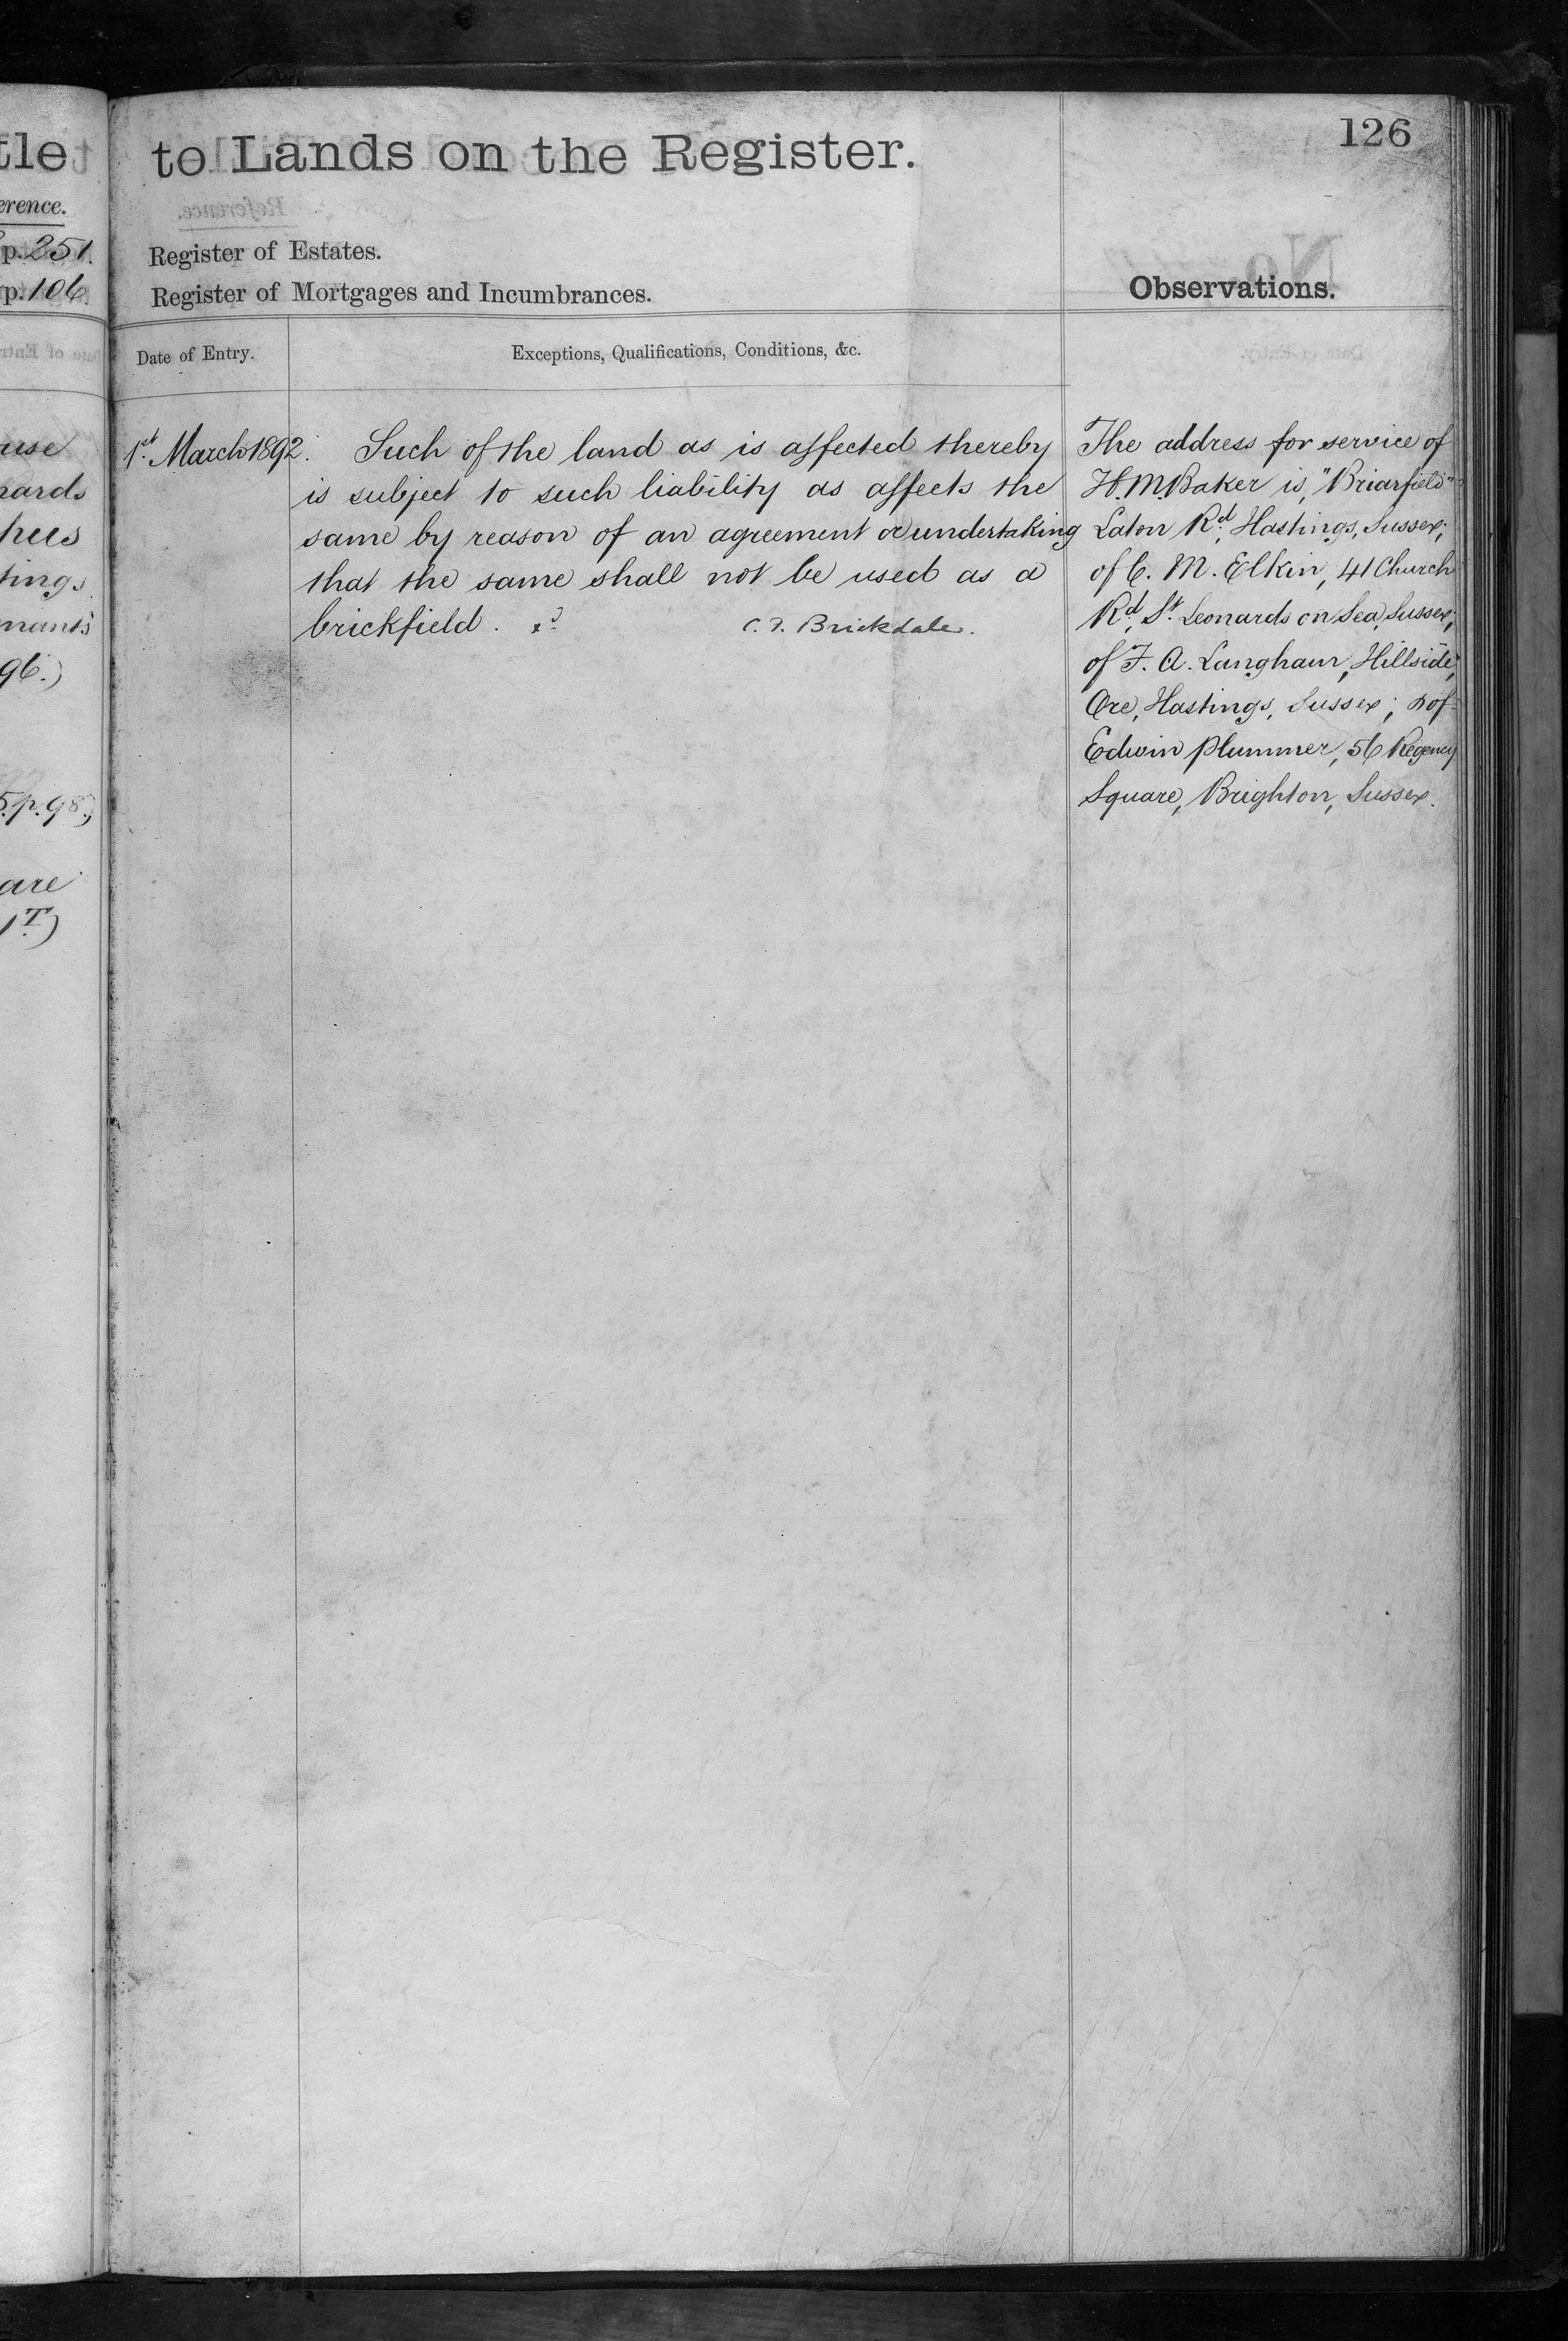 126
to Lands on the Register.
Register of Estates.
Register of Mortgages and Incumbrances.
Observations.
Date of Entry.
Exceptions, Qualifications, Conditions, &c.
1st March 1892.
Such of the land as is affected thereby
is subject to such liability as affects the
same by reason of an agreement or undertaking
that the same shall not be used as a
brickfield.
C. F. Brickdale.
The address for service of
H. M. Baker is, "Briarfield"
Laton Rd, Hastings, Sussex;
of C. M. Elkin, 41 Church
Rd, St. Leonards on Sea, Sussex;
of F. A. Langham, Hillside,
Ore, Hastings, Sussex; & of
Edwin Plummer, 56 Regency
Square, Brighton, Sussex.
p. 251.
p. 106.